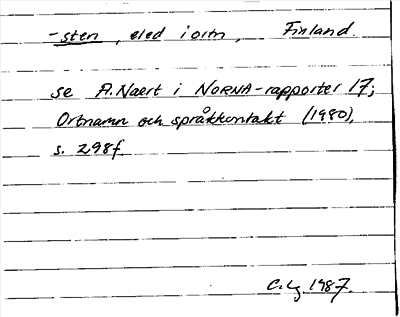 -sten, eled i ortn, Finland.
se A. Naert i NORNA-rapporter 17;
Ortnamn och språkkontakt (1980),
s. 298f.
C. Lg 1987.